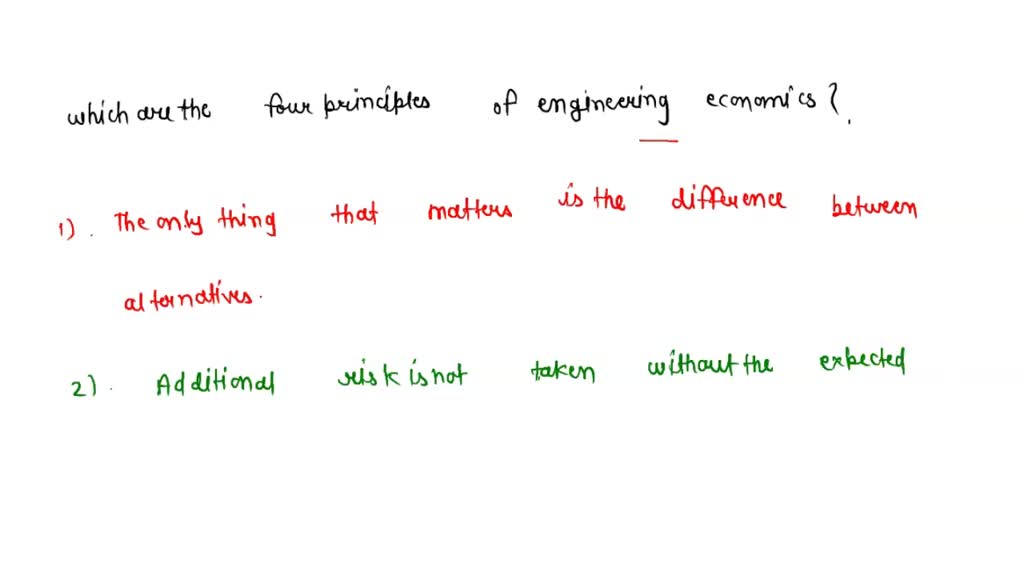 which are the four principles of engineering economics?
1). The only thing that matters is the difference between
alternatives.
2). Additional risk is not taken without the expected